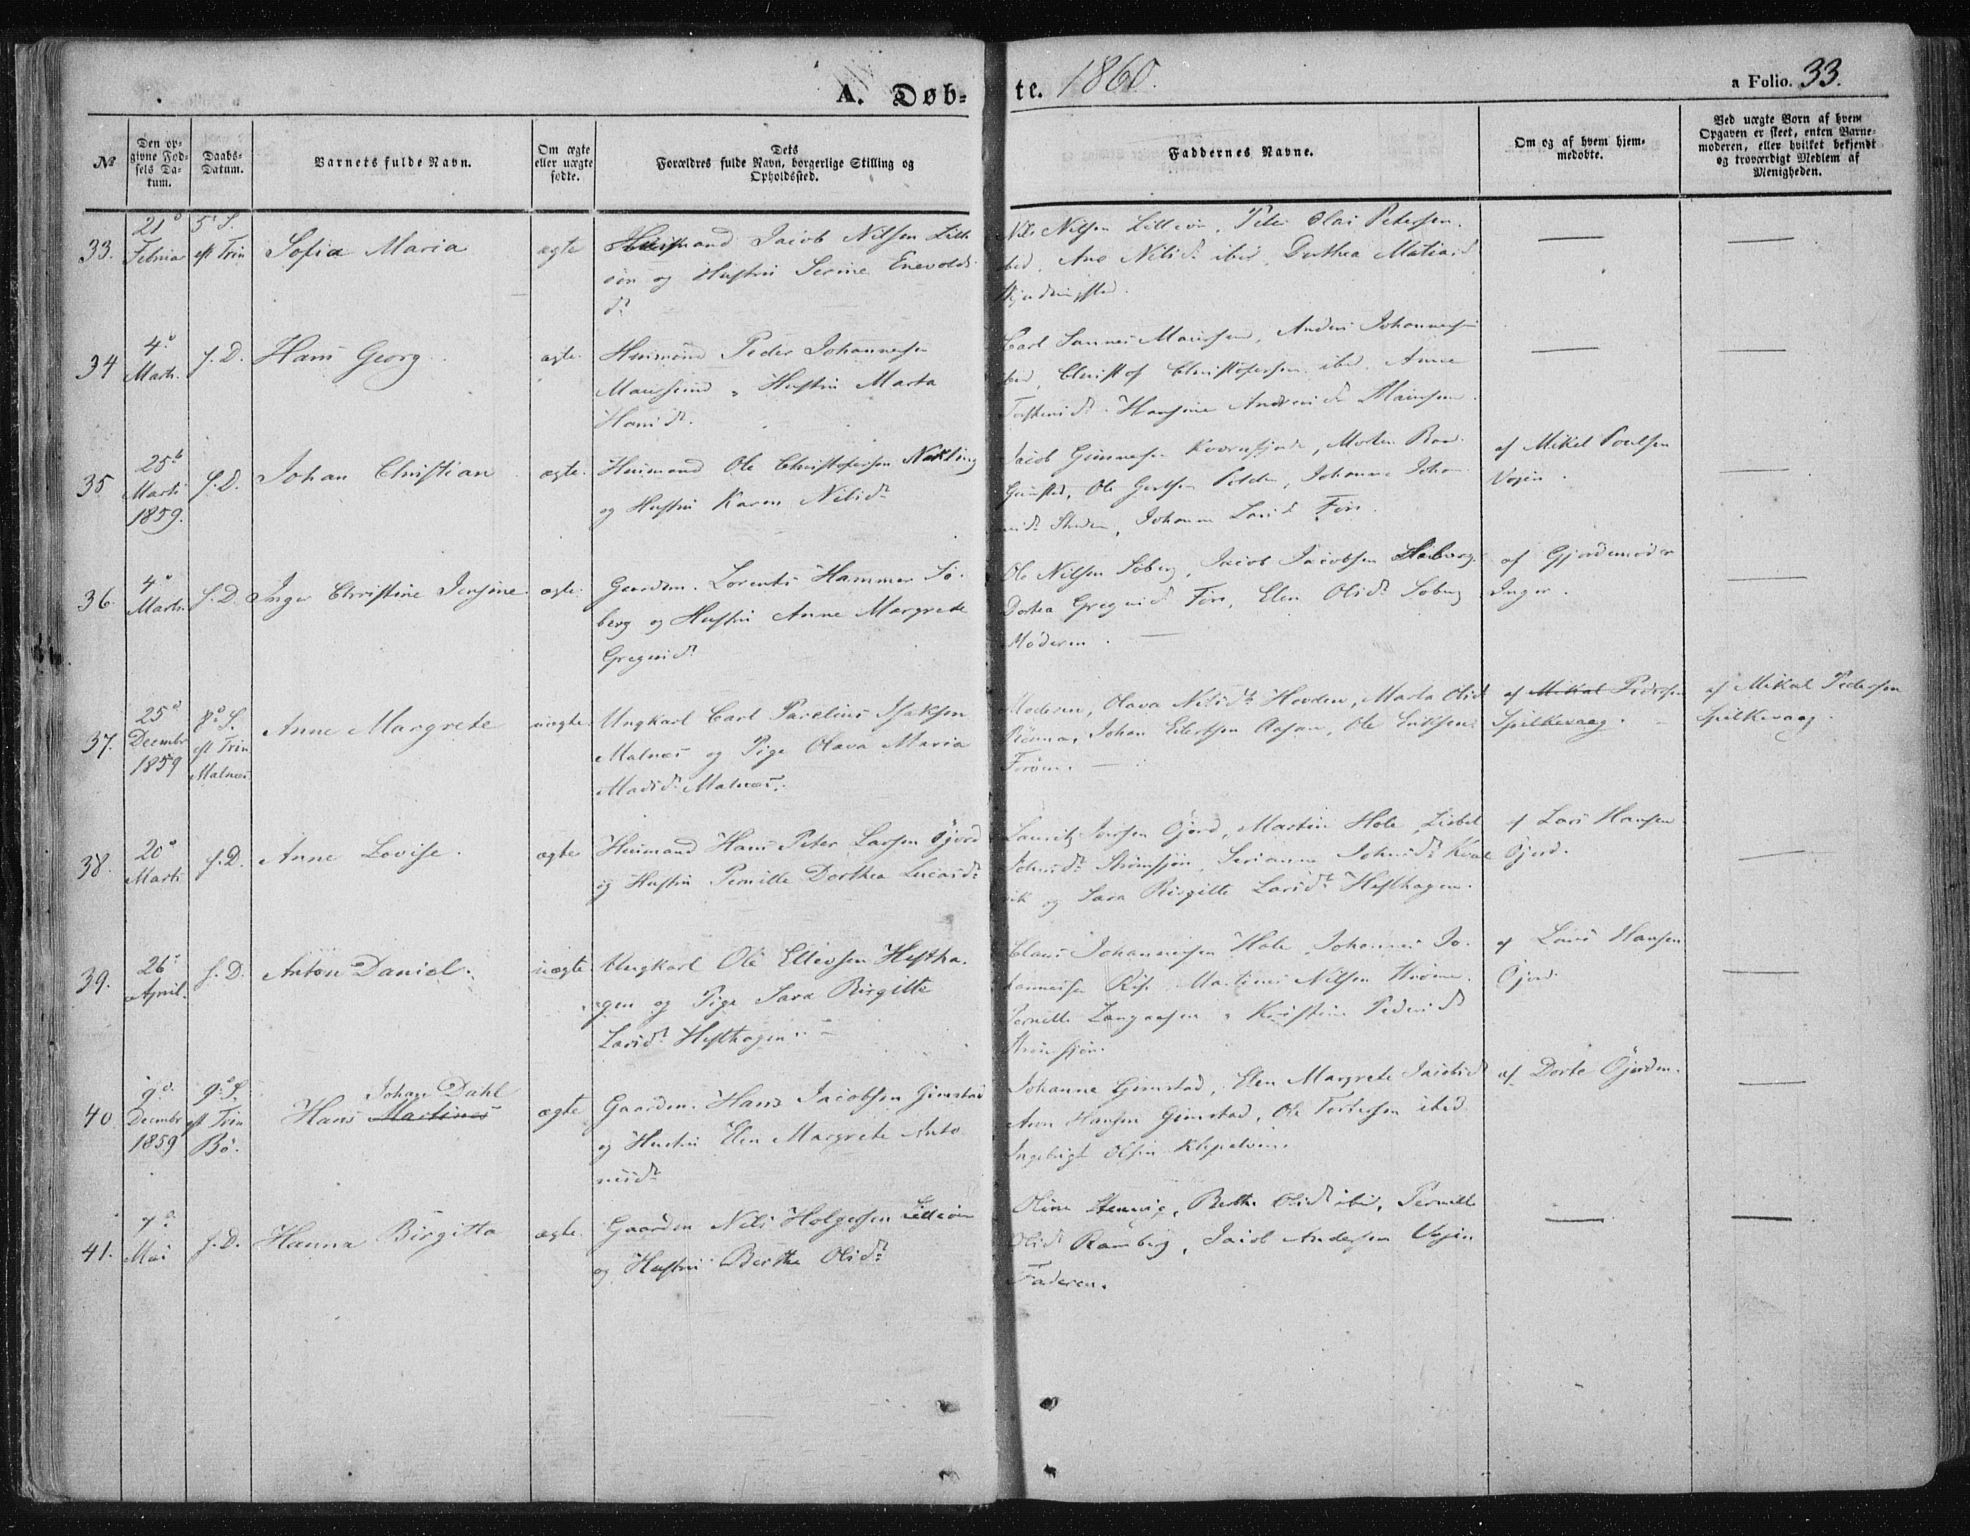 A. Døb-
te. 1860.
a Folio. 33.
№
Den op-
givne Fød-
sels Da-
tum.
Daabs-
Datum.
Barnets fulde Navn.
Om ægte
eller uægte
fødte.
Dets
Forældres fulde Navn, borgerlige Stilling og
Opholdssted.
Faddernes Navne.
Om og af hvem hjem-
medøbte.
Ved uægte Børn af hvem
Opgaven er skeet, enten Barne-
moderen, eller hvilket bekjendt
og troværdigt Medlem af
Menigheden.
33.
21d
Februar
5t S.
eft Trin
Sofia Maria
ægte
Huusmand Jacob Nilsen Lill-
øen og Hustru Serine Enevolds
dr
Nils Nilsen Lilleøn, Peter Olai Petersen
ibid, Ane Nilsdr ibid, Dorthea Matiasd
34
4d
Marts.
s. D.
Hans Georg
ægte.
Huusmand Peder Johannesen
Hustru Marta
Hansdr.
Carl Anders Johannes
ibid, Christof Christofersen ibid. Anne
Hansine
35
25d
Marts
1859.
s. D.
Johan Christian
ægte.
Huusmand Ole Christofersen Nikling
og Hustru Karen Nilsdr
Jacob Gunnesen Morten
Gimstad, Ole Johanne Johan
Føre.
af Mikel Poulsen
Vojen.
36.
4d
Marts.
s. D.
Inger Christine Jensine
ægte.
Gaardm. Lorents Hammer Sø-
berg og Hustru Anne Margrete
Gregusdr
Ole Nilsen Søberg, Jacob Jacobsen
Dortea Gregusd Føre, Elen Olsdr Søberg
Moderen.
af Gjordemoder
Inger.
37.
25d
Decembr
1859
8d S.
eft Trin
Malnæs
Anne Margrete
uægte.
Ungkarl Carl Parelius Isaksen
Malnæs og Pige Olava Maria
Madsdr Malnæs.
Moderen, Olava Nilsdr Hovden, Marta Olsd
Johan Eilertsen Aasan, Ole Eriksen
af Mikal Pedersen
Spilkevaag.
af Mikal Pedersen
Spilkevaag.
38.
20d
Marts
s. D.
Anne Lovise.
ægte
Huusmand Hans Peter Larsen Øjord
og Hustru Pernille Dorthea Lucasdr
Lauritz Jensen Øjord, Martin Hole, Lisbet
Johnsdr Strømsjøn, Serianna Johnsdr Kval
vik og Sara Birgitte Larsdr Hefthagen.
af Lars Hansen
Øjord.
39.
26d
April.
s. D.
Anton Daniel.
uægte
Ungkarl Ole Ellevsen Heftha-
gen og Pige Sara Birgitte
Larsdr Hefthagen.
Claus Johannesen Hole, Johannes Jo-
hannesen Martinus Nilsen
Pernille Langaasen, Kristine Pedersdr
Strømsjøn.
af Lars Hansen
Øjord.
40
9d
Decembr
1859
9d S.
eft Trin
Bø.
Johan Dahl
Hans Martinus
ægte
Gaardm. Hans Jacobsen Gimstad
og Hustru Elen Margrete Anto
niusdr
Johanne Gimstad, Elen Margrete Jacobsdr
Aron Hansen Gimstad, Ole Tostersen ibid
Ingebrigt Olsen
af Dorte Øjorden.
41.
7d
Mai
s. D.
Hanna Birgitta
ægte.
Gaardm Nils Holgersen Lilleøen
og Hustru Berthe Olsdr
Oline Steenvig, Berthe Olsdr ibid, Pernille
Olsdr Ramberg, Jacob Andersen Vojen
Faderen.